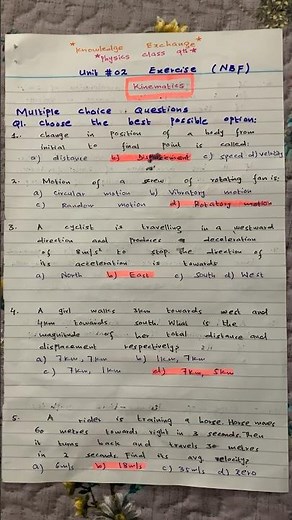 *Knowledge Exchange*
*Physics class 9th*
Unit #02 Exercise (NBF)
Kinematics
Multiple choice Questions
Q1. Choose the best possible option:
1. change in position of a body from
initial to final point is called:
a) distance b) Displacement c) speed d) velocity
2. Motion of a screw of rotating fan is:
a) Circular motion b) Vibratory motion
c) Random motion d) Rotatory motion
3. A cyclist is travelling in a westward
direction and produces a deceleration
of 8m/s² to stop. The direction of
its acceleration is towards
a) North b) East c) South d) West
4. A girl walks 3km towards west and
4km towards south. What is the
magnitude of her total distance and
displacement respectively?
a) 7km, 7km b) 1km, 7km
c) 7km, 1km d) 7km, 5km
5. A rider is training a horse. Horse moves
60 metres towards right in 3 seconds. Then
it turns back and travels 30 metres
in 2 seconds. Find its avg. velocity?
a) 6m/s b) 18m/s c) 35m/s d) Zero